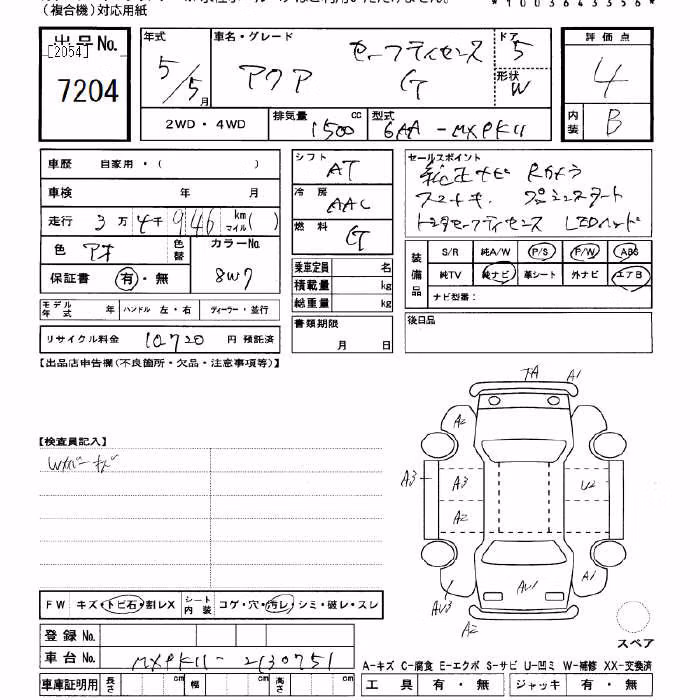 (複合機)対応用紙
*1003643356*
出品No.
[2054]
7204
年式
5/5月
車名・グレード
アクア
セーフティセンス
G
ドア
5
形状
W
評価点
4
内装
B
2WD・4WD
排気量
1500
cc
型式
6AA-MXPK11
車歴 自家用・( )
車検 年 月
走行 3万4千946 km マイル( )
色 アオ
色替
カラーNo.
8W7
保証書 有・無
モデル年式 年 ハンドル 左・右 ディーラー・並行
リサイクル料金 10720 円 預託済
シフト
AT
冷房
AAC
燃料
G
乗車定員 名
積載量 kg
総重量 kg
書類期限
月 日
セールスポイント
純正ナビ Rカメラ
スマートキー プッシュスタート
トヨタセーフティセンス LEDヘッド
装備品
S/R 純A/W P/S P/W ABS
純TV 純ナビ 革シート 外ナビ エアB
ナビ型番:
後日品
【出品店申告欄(不良箇所・欠品・注意事項等)】
【検査員記入】
Wカバーキズ
A1
A2
A3
A3
A2
U2
A1
AU3
AU1
A2
スペア
FW キズ・トビ石・割レX
シート内装
コゲ・穴・汚レ・シミ・破レ・スレ
登録No.
車台No. MXPK11-2130751
車庫証明用 長さ cm 幅 cm 高さ cm
A-キズ C-腐食 E-エクボ S-サビ U-凹ミ W-補修 XX-交換済
工具 有・無 ジャッキ 有・無